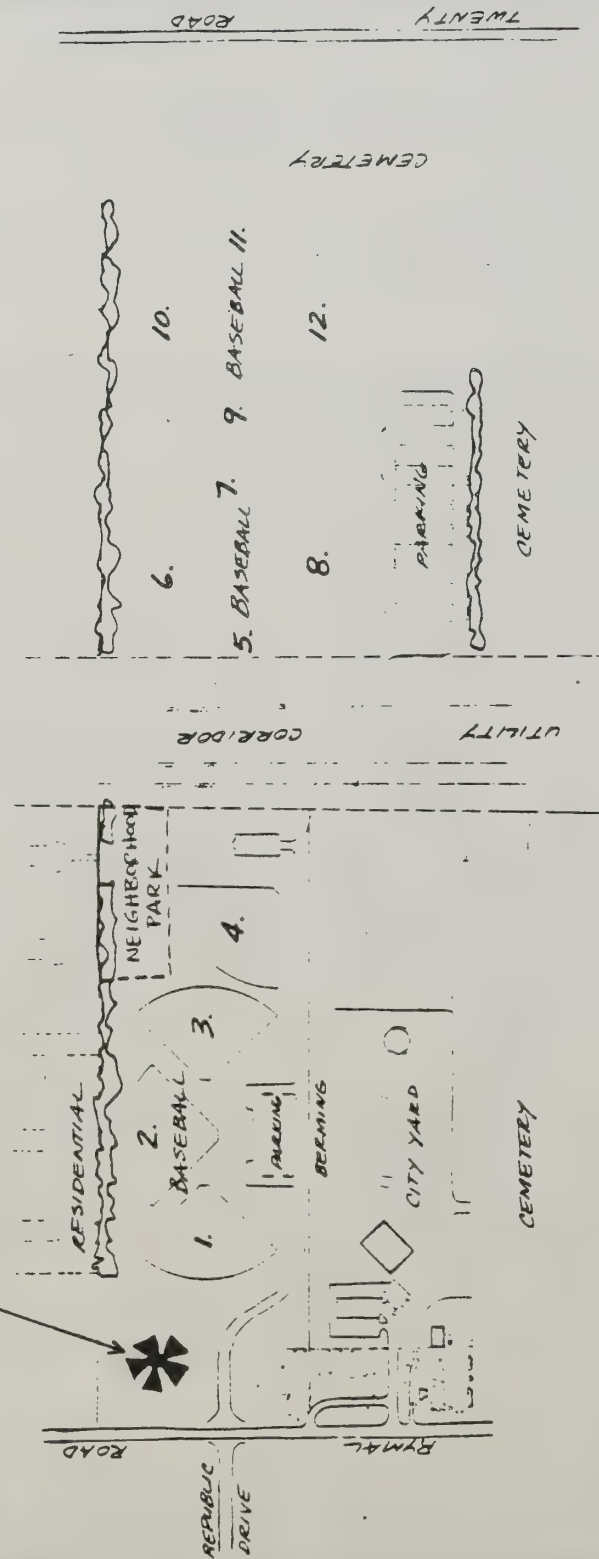 TWENTY ROAD
CEMETERY
10.
BASEBALL 11.
9.
12.
6.
5. BASEBALL 7.
8.
PARKING
CEMETERY
UTILITY CORRIDOR
NEIGHBORHOOD
PARK
4.
3.
RESIDENTIAL
2.
BASEBALL
1.
PARKING
BERMING
CITY YARD
CEMETERY
RYMAL ROAD
REPUBLIC
DRIVE